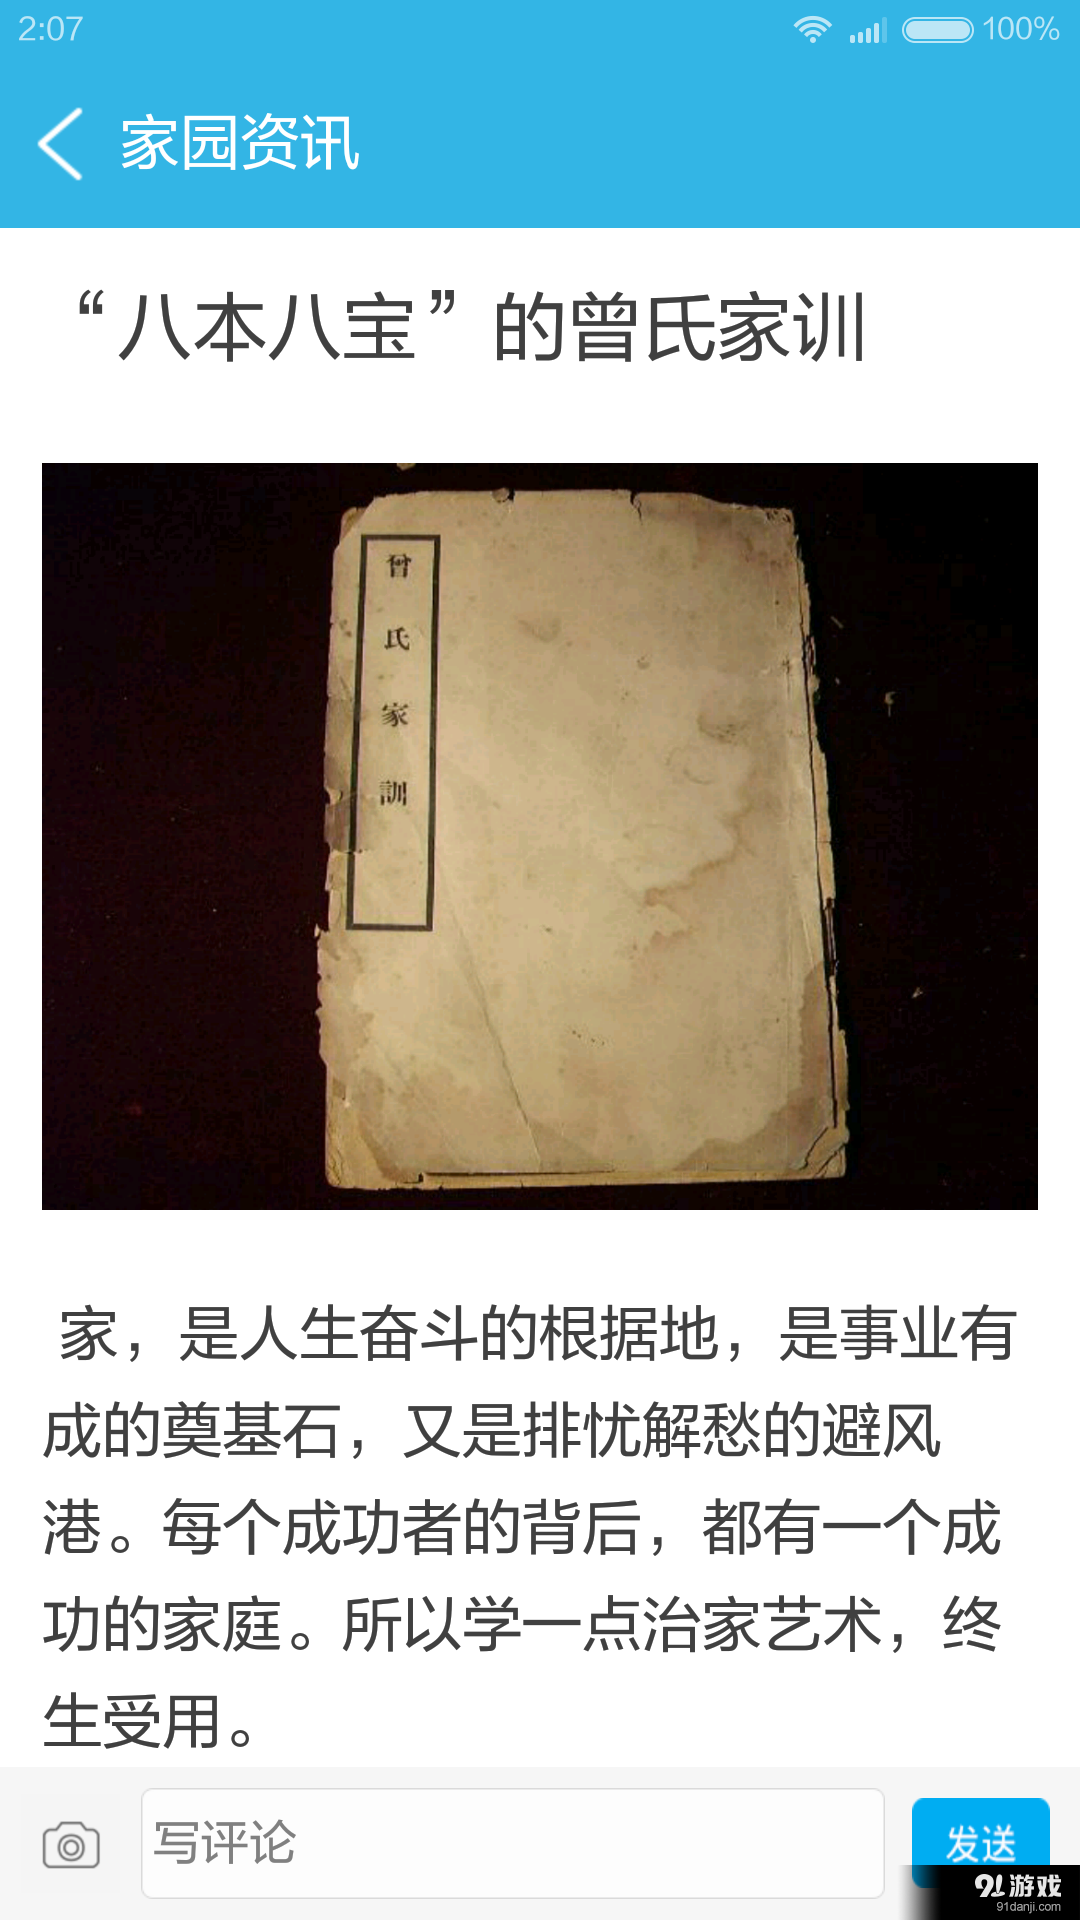 2:07
100%
家园资讯
“八本八宝”的曾氏家训
曾
氏
家
訓
家，是人生奋斗的根据地，是事业有
成的奠基石，又是排忧解愁的避风
港。每个成功者的背后，都有一个成
功的家庭。所以学一点治家艺术，终
生受用。
写评论
发送
91游戏
91danji.com